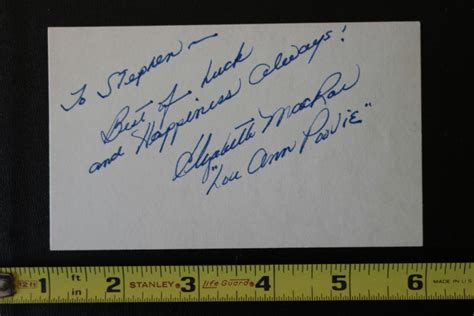 To Stephen —
Best of Luck
and Happiness always!
Elizabeth MacRae
"Lou Ann Poovie"
1 ft 2 STANLEY 3 Life Guard 4 5 6
12 IN MADE IN U.S.A